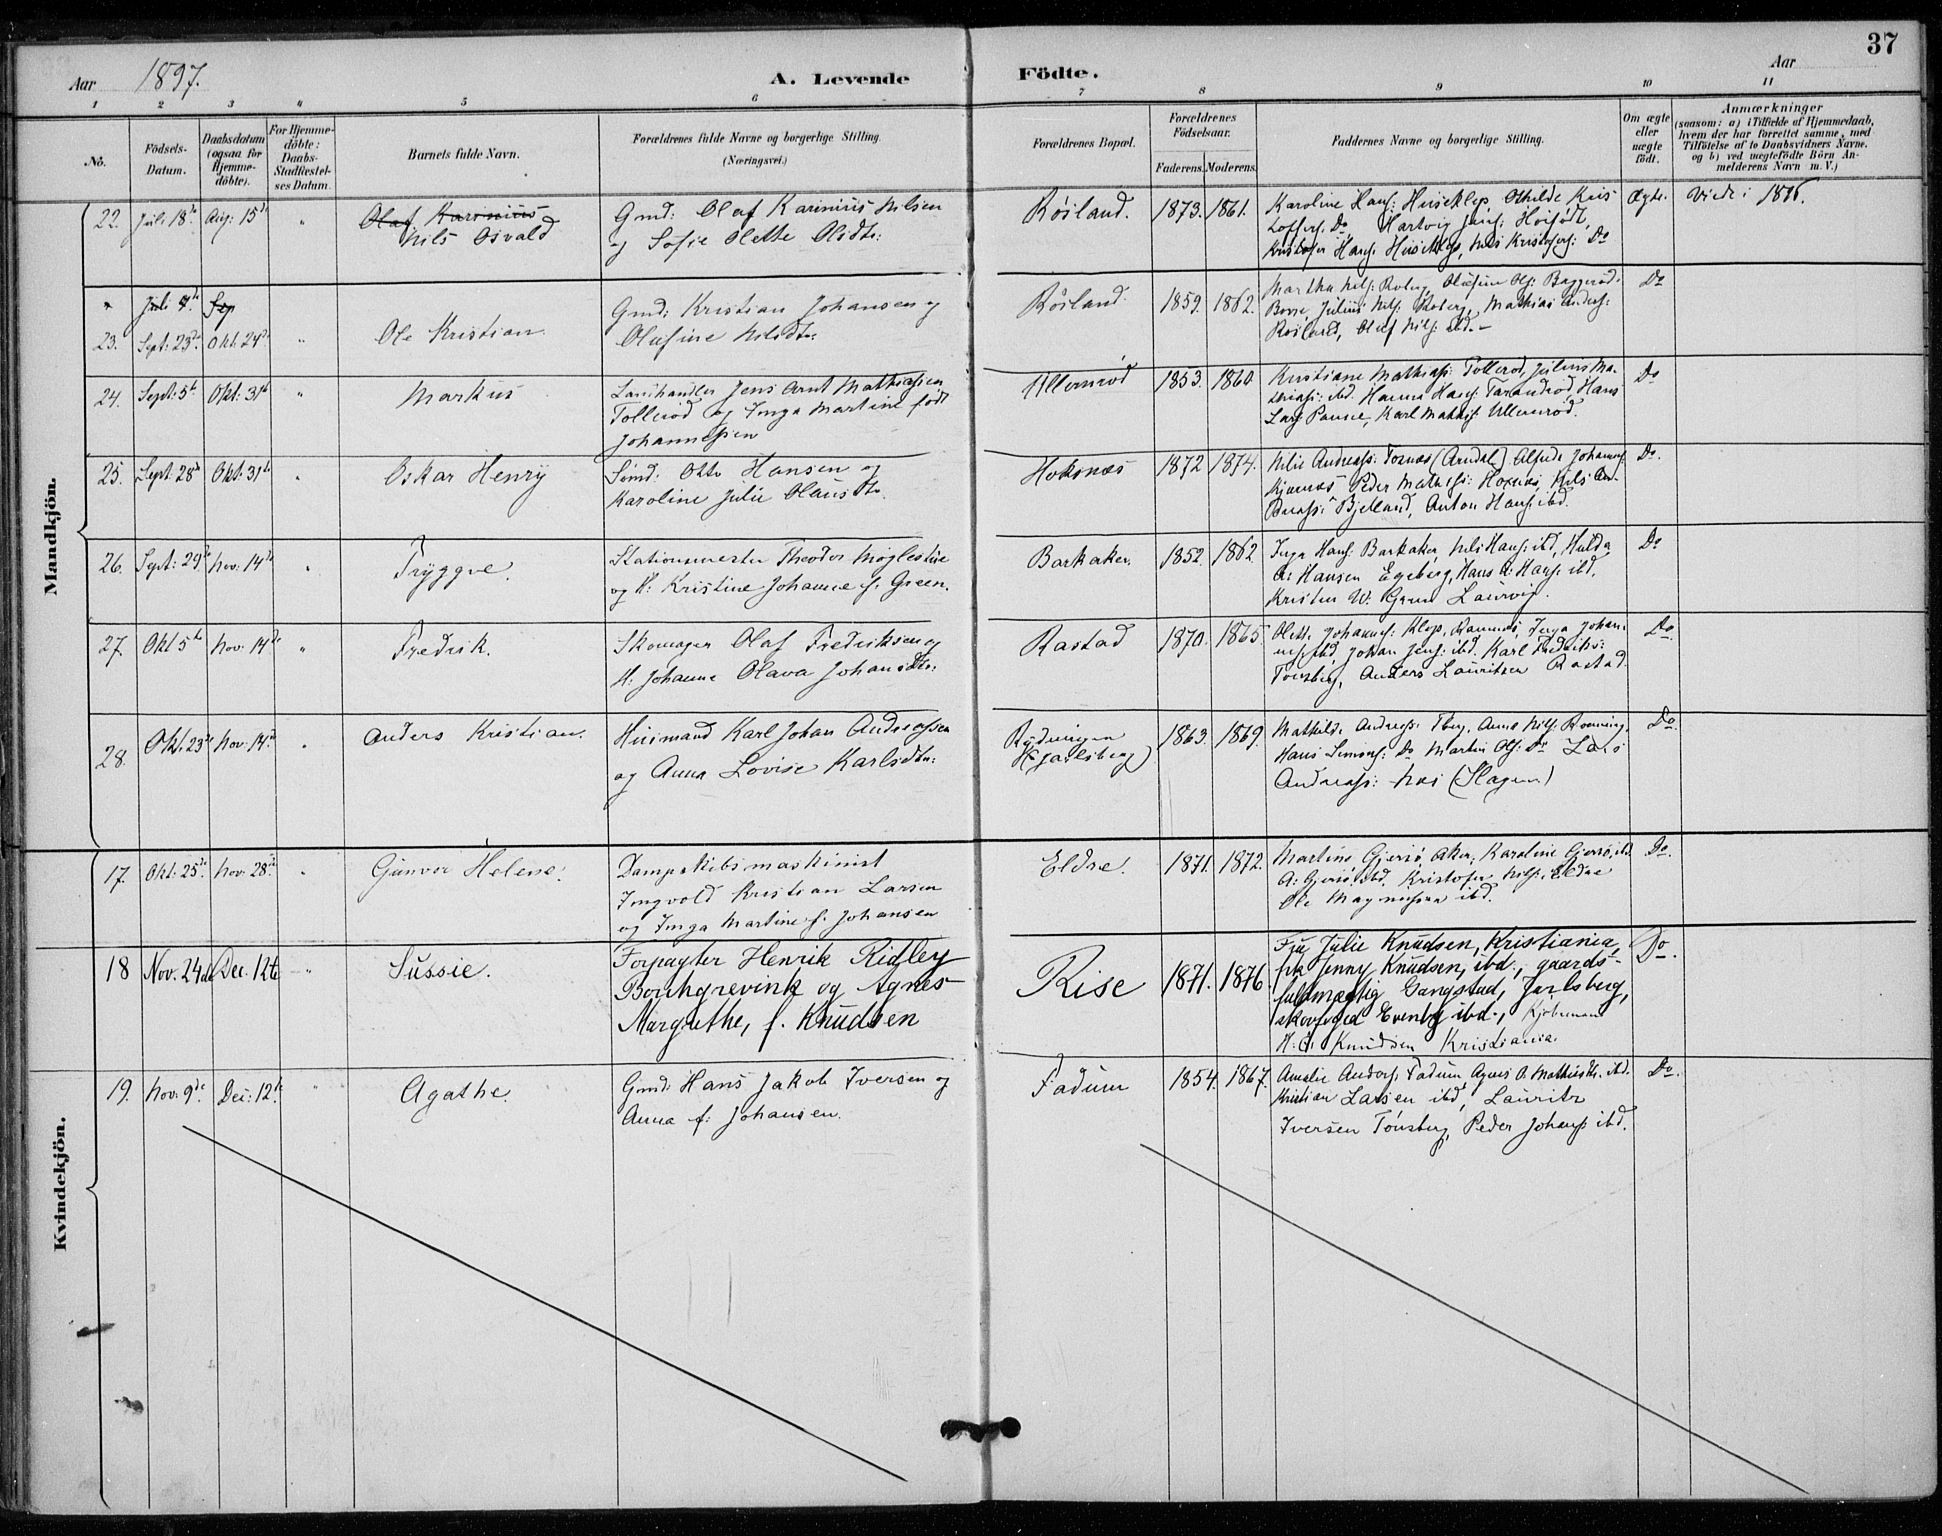 37
Aar 1897. A. Levende Födte. Aar
1 2 3 4 5 6 7 8 9 10 11
Nō. Födsels-Datum. Daabsdatum (ogsaa for Hjemme-döbte). For Hjemme-döbte: Daabs-Stadfæstel-ses Datum. Barnets fulde Navn. Forældrenes fulde Navne og borgerlige Stilling. (Næringsvei.) Forældrenes Bopæl. Forældrenes Födselsaar. Faderens. Moderens. Faddernes Navne og borgerlige Stilling. Om ægte eller uægte födt. Anmærkninger (soasom: a) i Tilfælde af Hjemmedaab, hvem der har forrettet samme, med Tilföielse af to Daabsvidners Navne. og b) ved uægtefödte Börn An-melderens Navn m. V.)
Mandkjön.
22. Juli 18de Aug: 15de " Olaf Karinius
Nils Osvald
Gmd: Olaf Karinius Nilsen
og Sofie Olette Olsdtr:
Röiland. 1873. 1861.
Karoline Hans: Huseklep, Othilde Kris
toffers. Do Hartvig Jens: Hoifödt,
Kristofer Hans. Huseklep, Nils Kristofers: Do
Ægte. Viede i 1896.
" Juli 4de Sep
23. Sept: 23de Okt: 24de " Ole Kristian.
Gmd: Kristian Johansen og
Olufine Nilsdtr:
Röiland. 1859. 1862.
Martha Nils: Roberg, Olufine Ols: Baggeröd.
Borre, Julius Nils: Roberg, Mathias Anders:
Roiland, Oluf Nils: ibd.–
Do
24. Sept: 5te Okt: 31te " Markus
Landhandler Jens Arnt Mathiassen
Tolleröd og Inga Martine född
Johannessen
Ullernröd 1853. 1860
Kristiane Mathiass: Tolleröd, Julius Ma-
thiass: ibd. Hanna Hans: Taranröd, Hans
Lars: Pause, Karl Mathiss: Ullenröd.
Do
25. Sept: 28de Okt: 31te " Oskar Henry
Sömd: Otto Hansen og
Karoline Julie Olausdtr.
Hoksnæs 1872 1874.
Nils Andreass: Fosnæs (Arndal) Alfrede Johanns:
Kjærnæs Peder Mathiss: Hoxnæs, Nils An-
dreass: Bjelland, Anton Hans: ibd.
Do.
26. Sept: 29de Nov: 14de " Tryggve.
Stationsmester Theodor Möglestue
og H: Kristine Johanne f. Green.
Barkaker. 1852. 1862
Inga Hans: Barkaker, Nils Hans: ibd, Hulda
A: Hansen Egeberg, Hans A: Hans: ibd.
Kristen W. Green Laurvig.
Do
27. Okt 5te Nov: 14de " Fredrik.
Skomager Olaf Fredriksen og
H: Johanne Olava Johansdtr:
Rastad 1870. 1865
Olette Johanns: Klop, Ramnæs, Inga Johan
ness: ibd, Johan Jens: ibd. Karl Fredriks:
Tönsberg, Anders Lauritsen Rastad.
Do
28. Okt. 23de Nov: 14de " Anders Kristian.
Husmand Karl Johan Andreassen
og Anna Lovise Karlsdtr:
Rydningen
(Jarlsberg) 1863. 1869.
Mathilde Andreass: Berg, Anne Nils: Roening,
Hans Simons: Do Martin Ols: Do Lars
Andreass: Næs (Slagen)
Do
Kvindekjön.
17. Okt: 25de Nov: 28de " Gunvor Helene.
Dampskibsmaskinist
Ingvold Kristian Larsen
og Inga Martine f. Johansen
Eldre. 1871. 1872.
Martine Gjersö, Aker, Karoline Gjersö, ibd.
A: Gjersö, ibd. Kristofer Nils: Eldre
Ole Magnussen ibd.
Do.
18 Nov. 24de Dec. 12te " Sussie.
Forpagter Henrik Ridley
Borchgrevink og Agnes
Margrethe, f. Knudsen
Rise 1871. 1876
Fru Julie Knudsen, Kristiania,
frk Jenny Knudsen, ibd., gaards-
fuldmægtig Gangstad, Jarlsberg,
skovfoged Evenby ibd., Kjöbmand
H: C: Knudsen Kristiania.
Do.
19. Nov: 9de Dec: 12te " Agathe.
Gmd: Hans Jakob Iversen og
Anna f: Johansen.
Fadum 1854. 1867.
Amalie Anders: Fadum, Agnes O. Mathisdtr. ibd.
Kristian Larsen ibd, Lauritz
Iversen Tönsberg, Peder Johans: ibd.
Do.